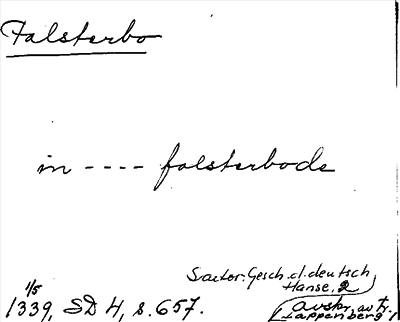 Falsterbo
in - - - - falsterbode
Sartor: Gesch. d. deutsch
Hanse, 2
(avskr. av tr.
Lappenberg)
1/5
1339, SD 4, s. 657.